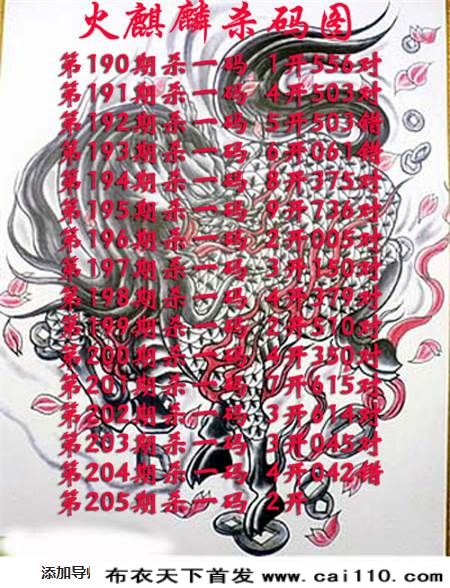 火麒麟杀码图
第190期杀一码 1开556对
第191期杀一码 4开503对
第192期杀一码 5开503错
第193期杀一码 6开061错
第194期杀一码 8开375对
第195期杀一码 9开736对
第196期杀一码 2开005对
第197期杀一码 3开150对
第198期杀一码 4开379对
第199期杀一码 2开510对
第200期杀一码 4开350对
第201期杀一码 7开615对
第202期杀一码 3开614对
第203期杀一码 3开045对
第204期杀一码 4开042错
第205期杀一码 2开
添加导
布衣天下首发 www.cai110.com